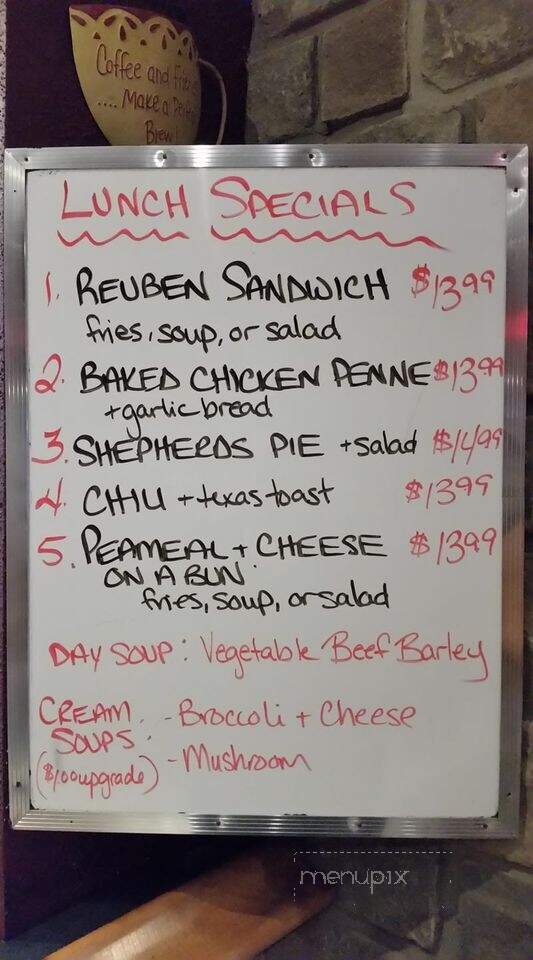 Coffee and
.... Make a
Brew
LUNCH SPECIALS
1. REUBEN SANDWICH $13.99
fries, soup, or salad
2. BAKED CHICKEN PENNE $13.99
+garlic bread
3. SHEPHERDS PIE +salad $14.99
4. CHILI + texas toast $13.99
5. PEAMEAL + CHEESE $13.99
ON A BUN
fries, soup, or salad
DAY SOUP: Vegetable Beef Barley
CREAM - Broccoli + Cheese
SOUPS:
($1.00 upgrade) - Mushroom
menupix